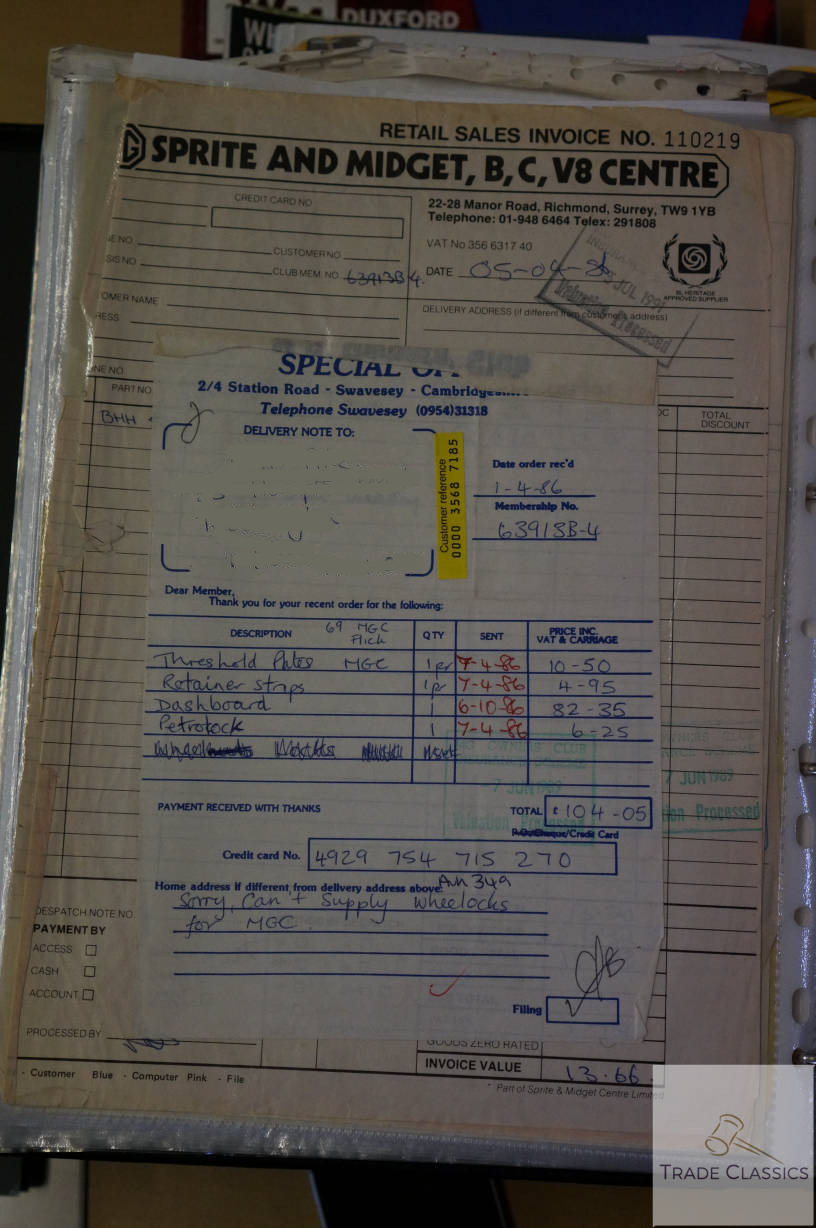 DUXFORD
RETAIL SALES INVOICE NO. 110219
SPRITE AND MIDGET, B, C, V8 CENTRE
CREDIT CARD NO
22-28 Manor Road, Richmond, Surrey, TW9 1YB
Telephone: 01-948 6464 Telex: 291808
VAT No 356 6317 40
CUSTOMER NO
CLUB MEM. NO 63913B 4.
DATE 05-04-
BL HERITAGE
APPROVED SUPPLIER
OMER NAME
RESS
DELIVERY ADDRESS (if different from customer's address)
JUL 199
Processed
NE NO
PART NO
TOTAL
DISCOUNT
BHH
SPECIAL
2/4 Station Road - Swavesey - Cambridgeshire
Telephone Swavesey (0954)31318
DELIVERY NOTE TO:
Customer reference
0000 3568 7185
Date order rec'd
1-4-86
Membership No.
63913B-4
Dear Member,
Thank you for your recent order for the following:
DESCRIPTION 69 MGC QTY SENT PRICE INC.
VAT & CARRIAGE
Threshold Plates MGC 1pr 7-4-86 10-50
Retainer strips 1pr 7-4-86 4-95
Dashboard 1 6-10-86 82-35
Petrolock 1 7-4-86 6-25
OWNERS CLUB
7 JUN 1989
Valuation Processed
PAYMENT RECEIVED WITH THANKS
TOTAL £104-05
P.O./Cheque/Credit Card
Credit card No. 4929 754 715 270
Home address if different from delivery address above:
Sorry, Can't Supply wheelocks
for MGC.
Filing
DESPATCH NOTE NO.
PAYMENT BY
ACCESS
CASH
ACCOUNT
PROCESSED BY
GOODS ZERO RATED
INVOICE VALUE 13.66
- Customer Blue - Computer Pink - File
* Part of Sprite & Midget Centre Limited
TRADE CLASSICS